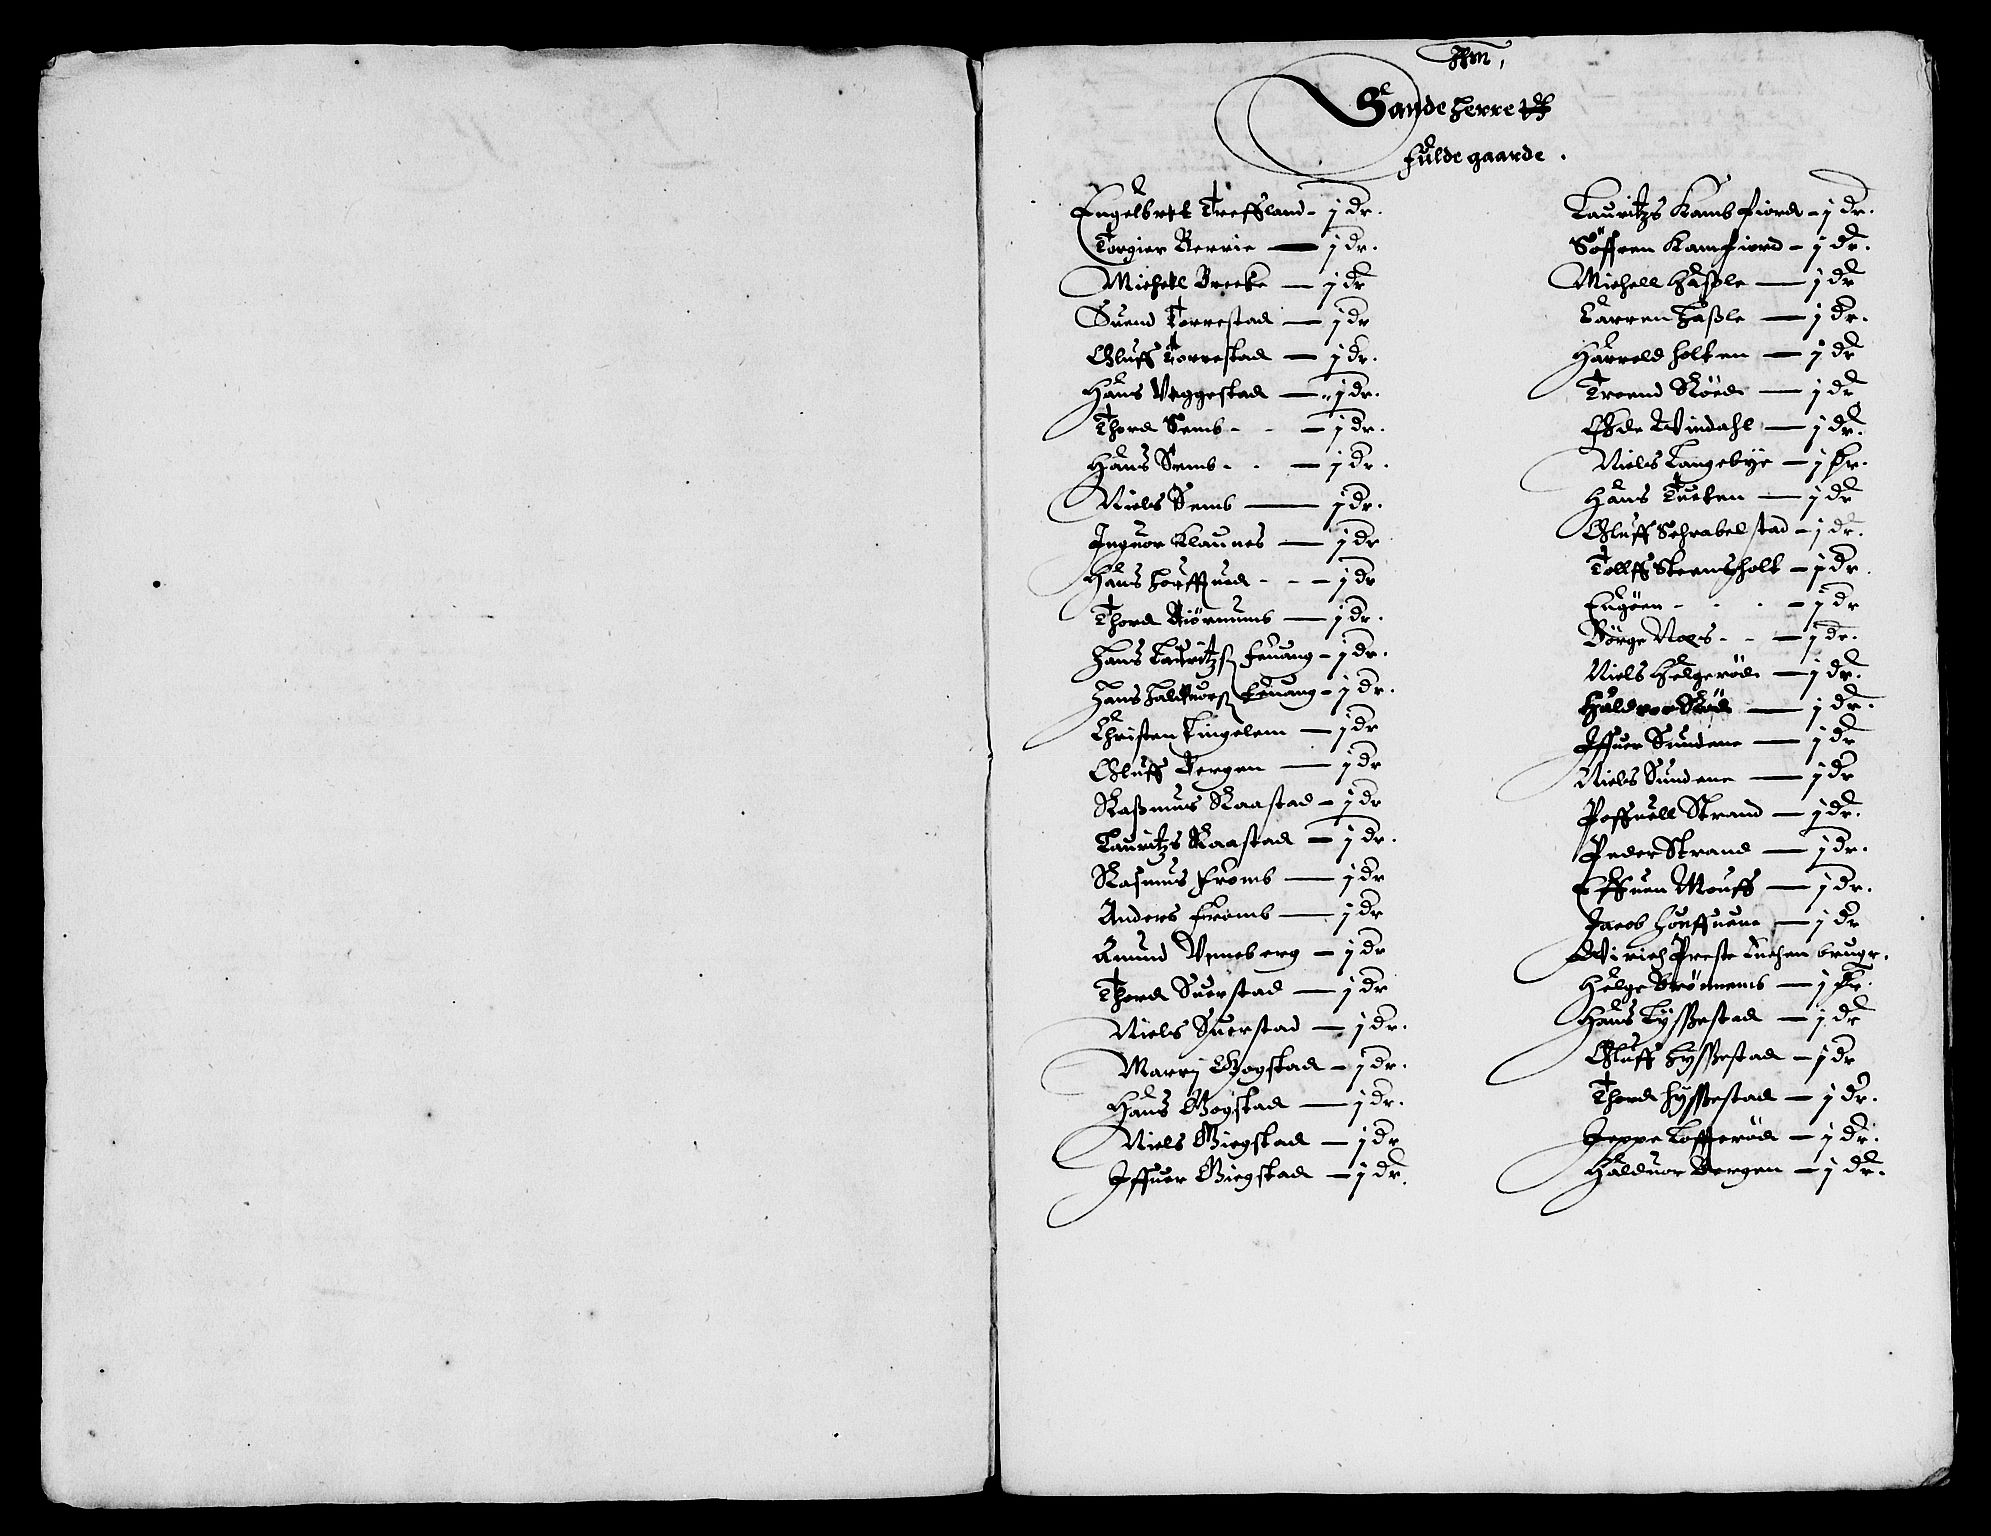 Sandeherrett
fulde gaarde.
Engelbret Treffland - j dr.
Torgier Berrie - j dr.
Michell Brecke - j dr
Suend Torrestad - j dr
Oluff Torrestad - j dr.
Hans Veggestad - j dr.
Thord Semb - j dr.
Hans Semb - j dr.
Niels Semb - j dr.
Inguor Klaunes - j dr
Hans - j dr
Thord Kiörnums - j dr.
Hans Lauritzs Feuang - j dr.
Hans Halduors Feuang - j dr.
Christen Tingelem - j dr
Oluff Bergen - j dr
Rasmus Raastad - j dr
Lauritzs Raastad - j dr.
Rasmus Fromb - j dr
Anders Fromb - j dr
Amund Unneberg - j dr
Thord Suerstad - j dr
Niels Suerstad - j dr.
Marrj Gogstad - j dr.
Hans Gogstad - j dr.
Niels Giegstad - j dr
Iffuer Giegstad - j dr.
Lauritzs Kambfiord - j dr.
Söffren Kamfiord - j dr.
Michell Haßle - j dr
Larren Haßle - j dr.
Harreld Holten - j dr
Troend Röed - j dr
Ode Windahl - j dr.
Niels Langebye - j dr.
Hans Tuften - j dr
Oluff Schrabelstad - j dr.
Tolff Steensholt - j dr.
Engöen - j dr
Börge Nees - j dr.
Niels Helgeröd - j dr.
Haldvor Röd - j dr.
Iffuer Sundene - j dr
Niels Sundene - j dr
Poffuell Strand - j dr.
Peder Strand - j dr.
Effuen Mouff - j dr.
Jacob - j dr
Wirich Preste Enchen brugr.
Helge Strömembs - j dr.
Hans Hysßestad - j dr
Oluff Hysßestad - j dr
Thord Hysßestad - j dr.
Jeppe Lofferöd - j dr.
Halduor Bergen - j dr.